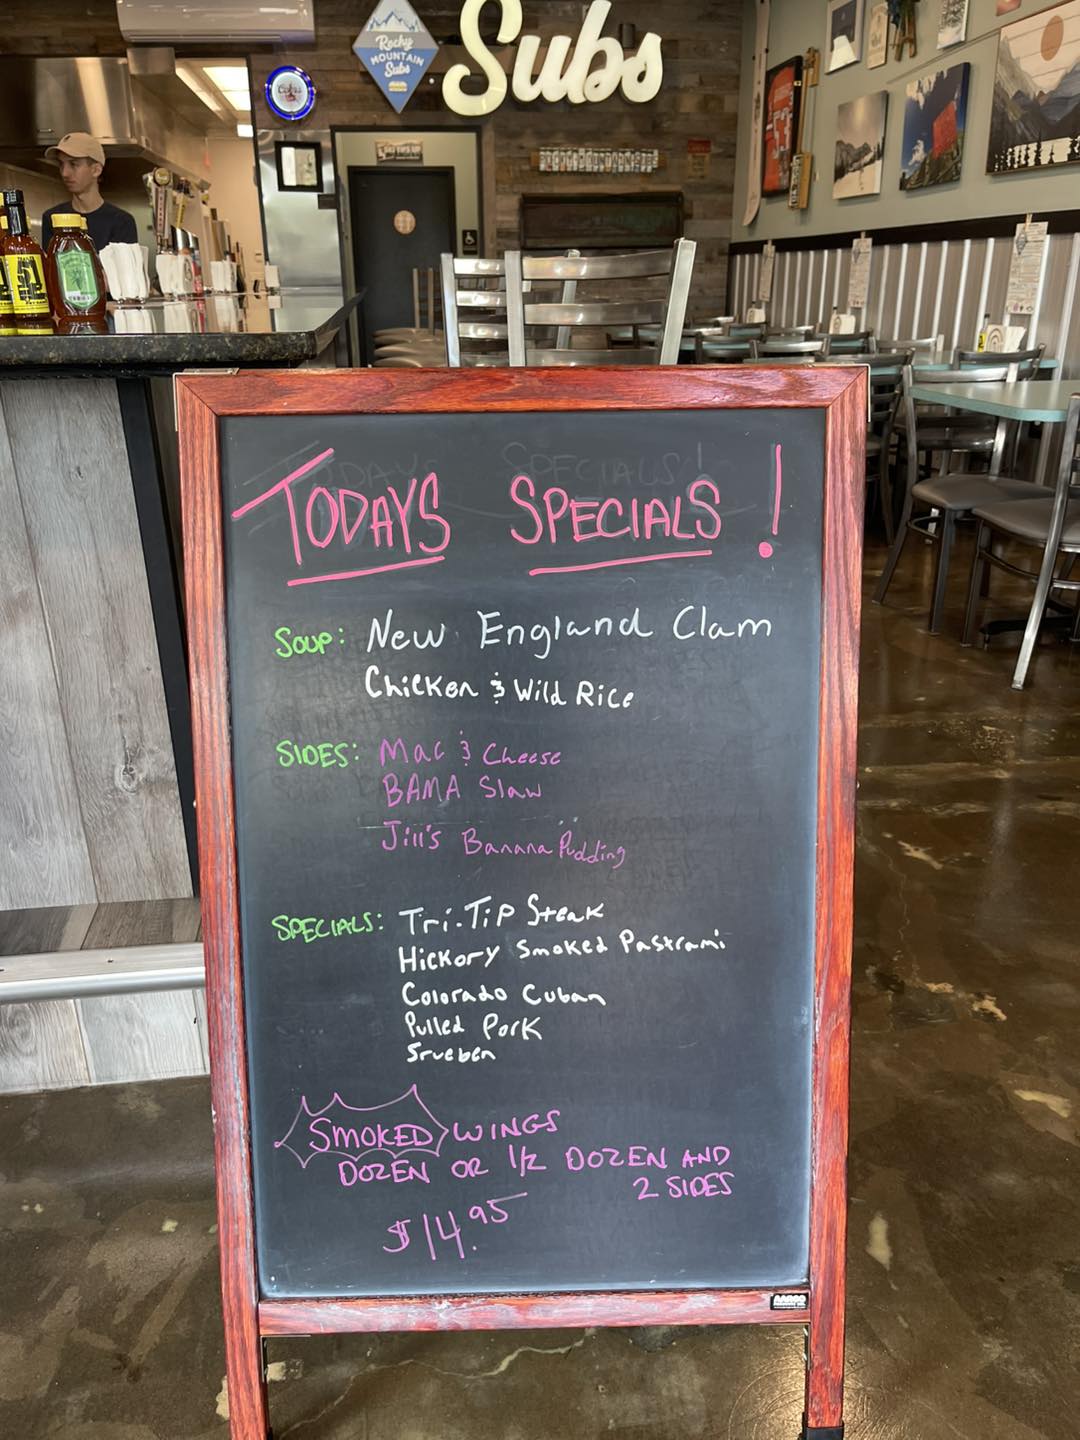 Subs
Rocky
MOUNTAIN
Subs
Coors
51
TODAYS SPECIALS!
TODAYS SPECIALS!
SOUP: New England Clam
Chicken & Wild Rice
SIDES: Mac & Cheese
BAMA Slaw
Jill's Banana Pudding
SPECIALS: Tri-Tip Steak
Hickory Smoked Pastrami
Colorado Cuban
Pulled Pork
Srueben
SMOKED WINGS
DOZEN OR 1/2 DOZEN AND
2 SIDES
$14.95